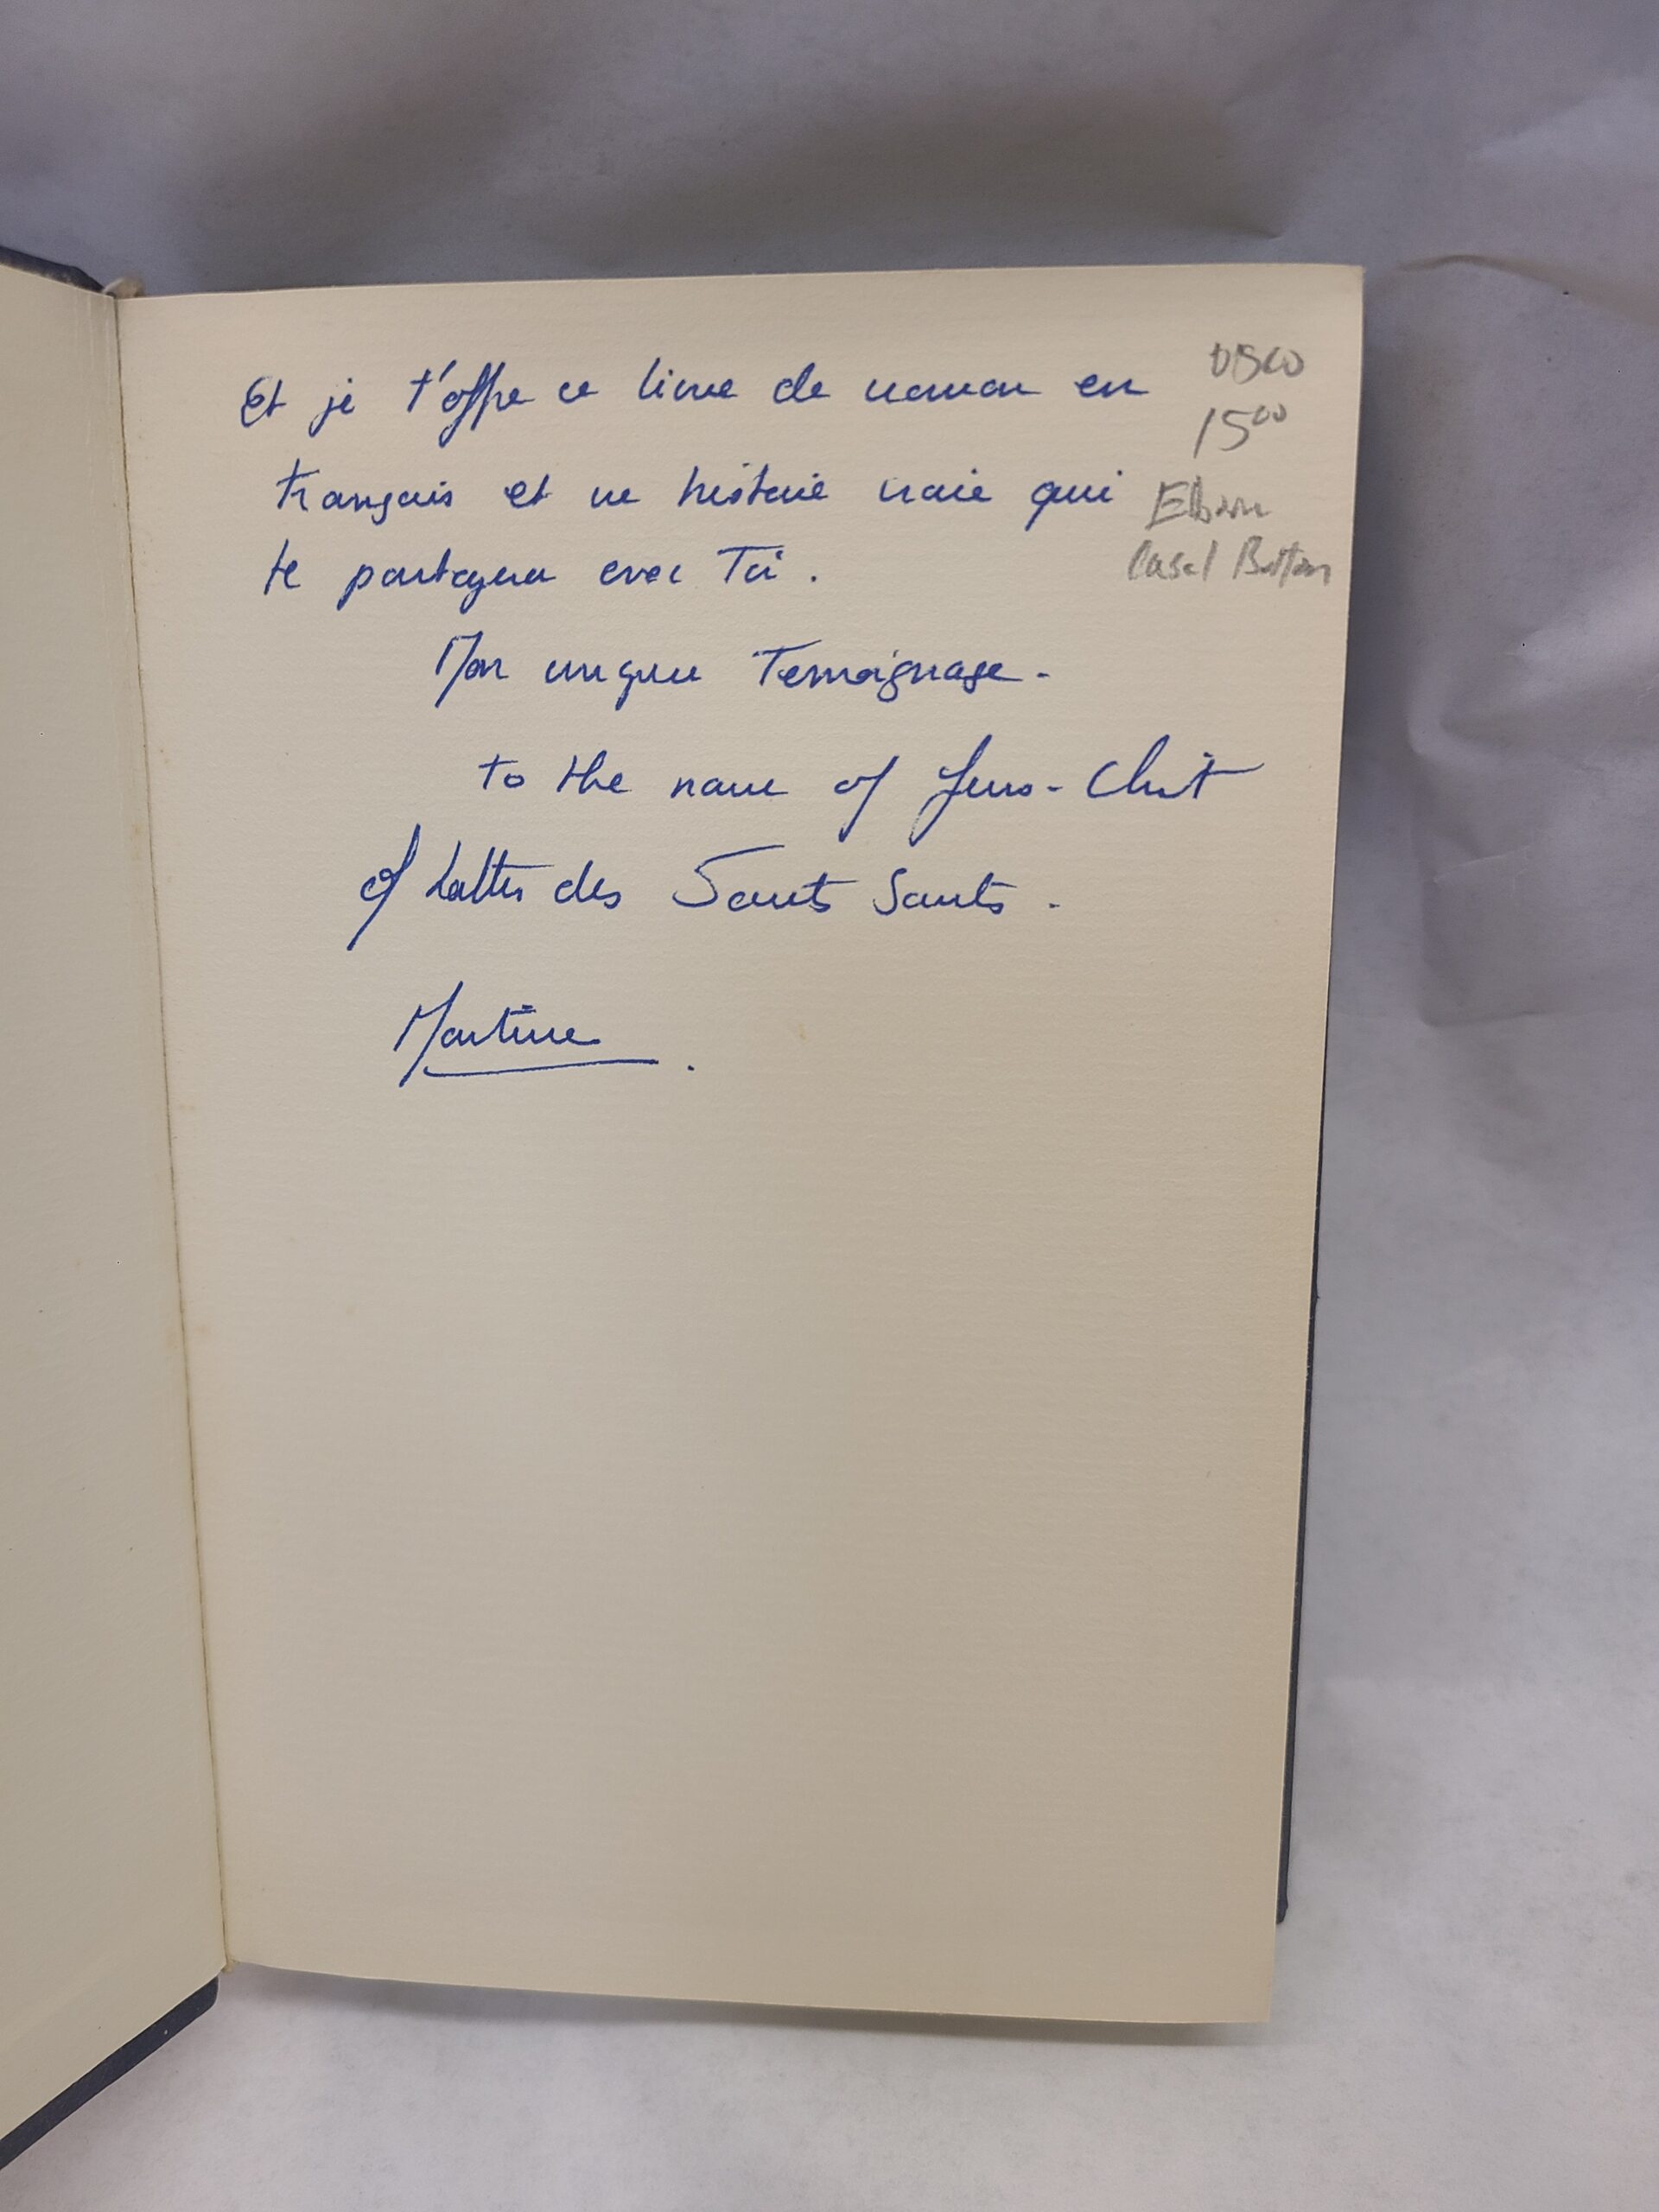 Et je t'offre ce livre de roman en
français et une histoire vraie qui
te partagera avec Toi.
Mon unique Temoignage.
to the name of Jesus-Christ
of Latter des Saints Saints.
Martine.
1500